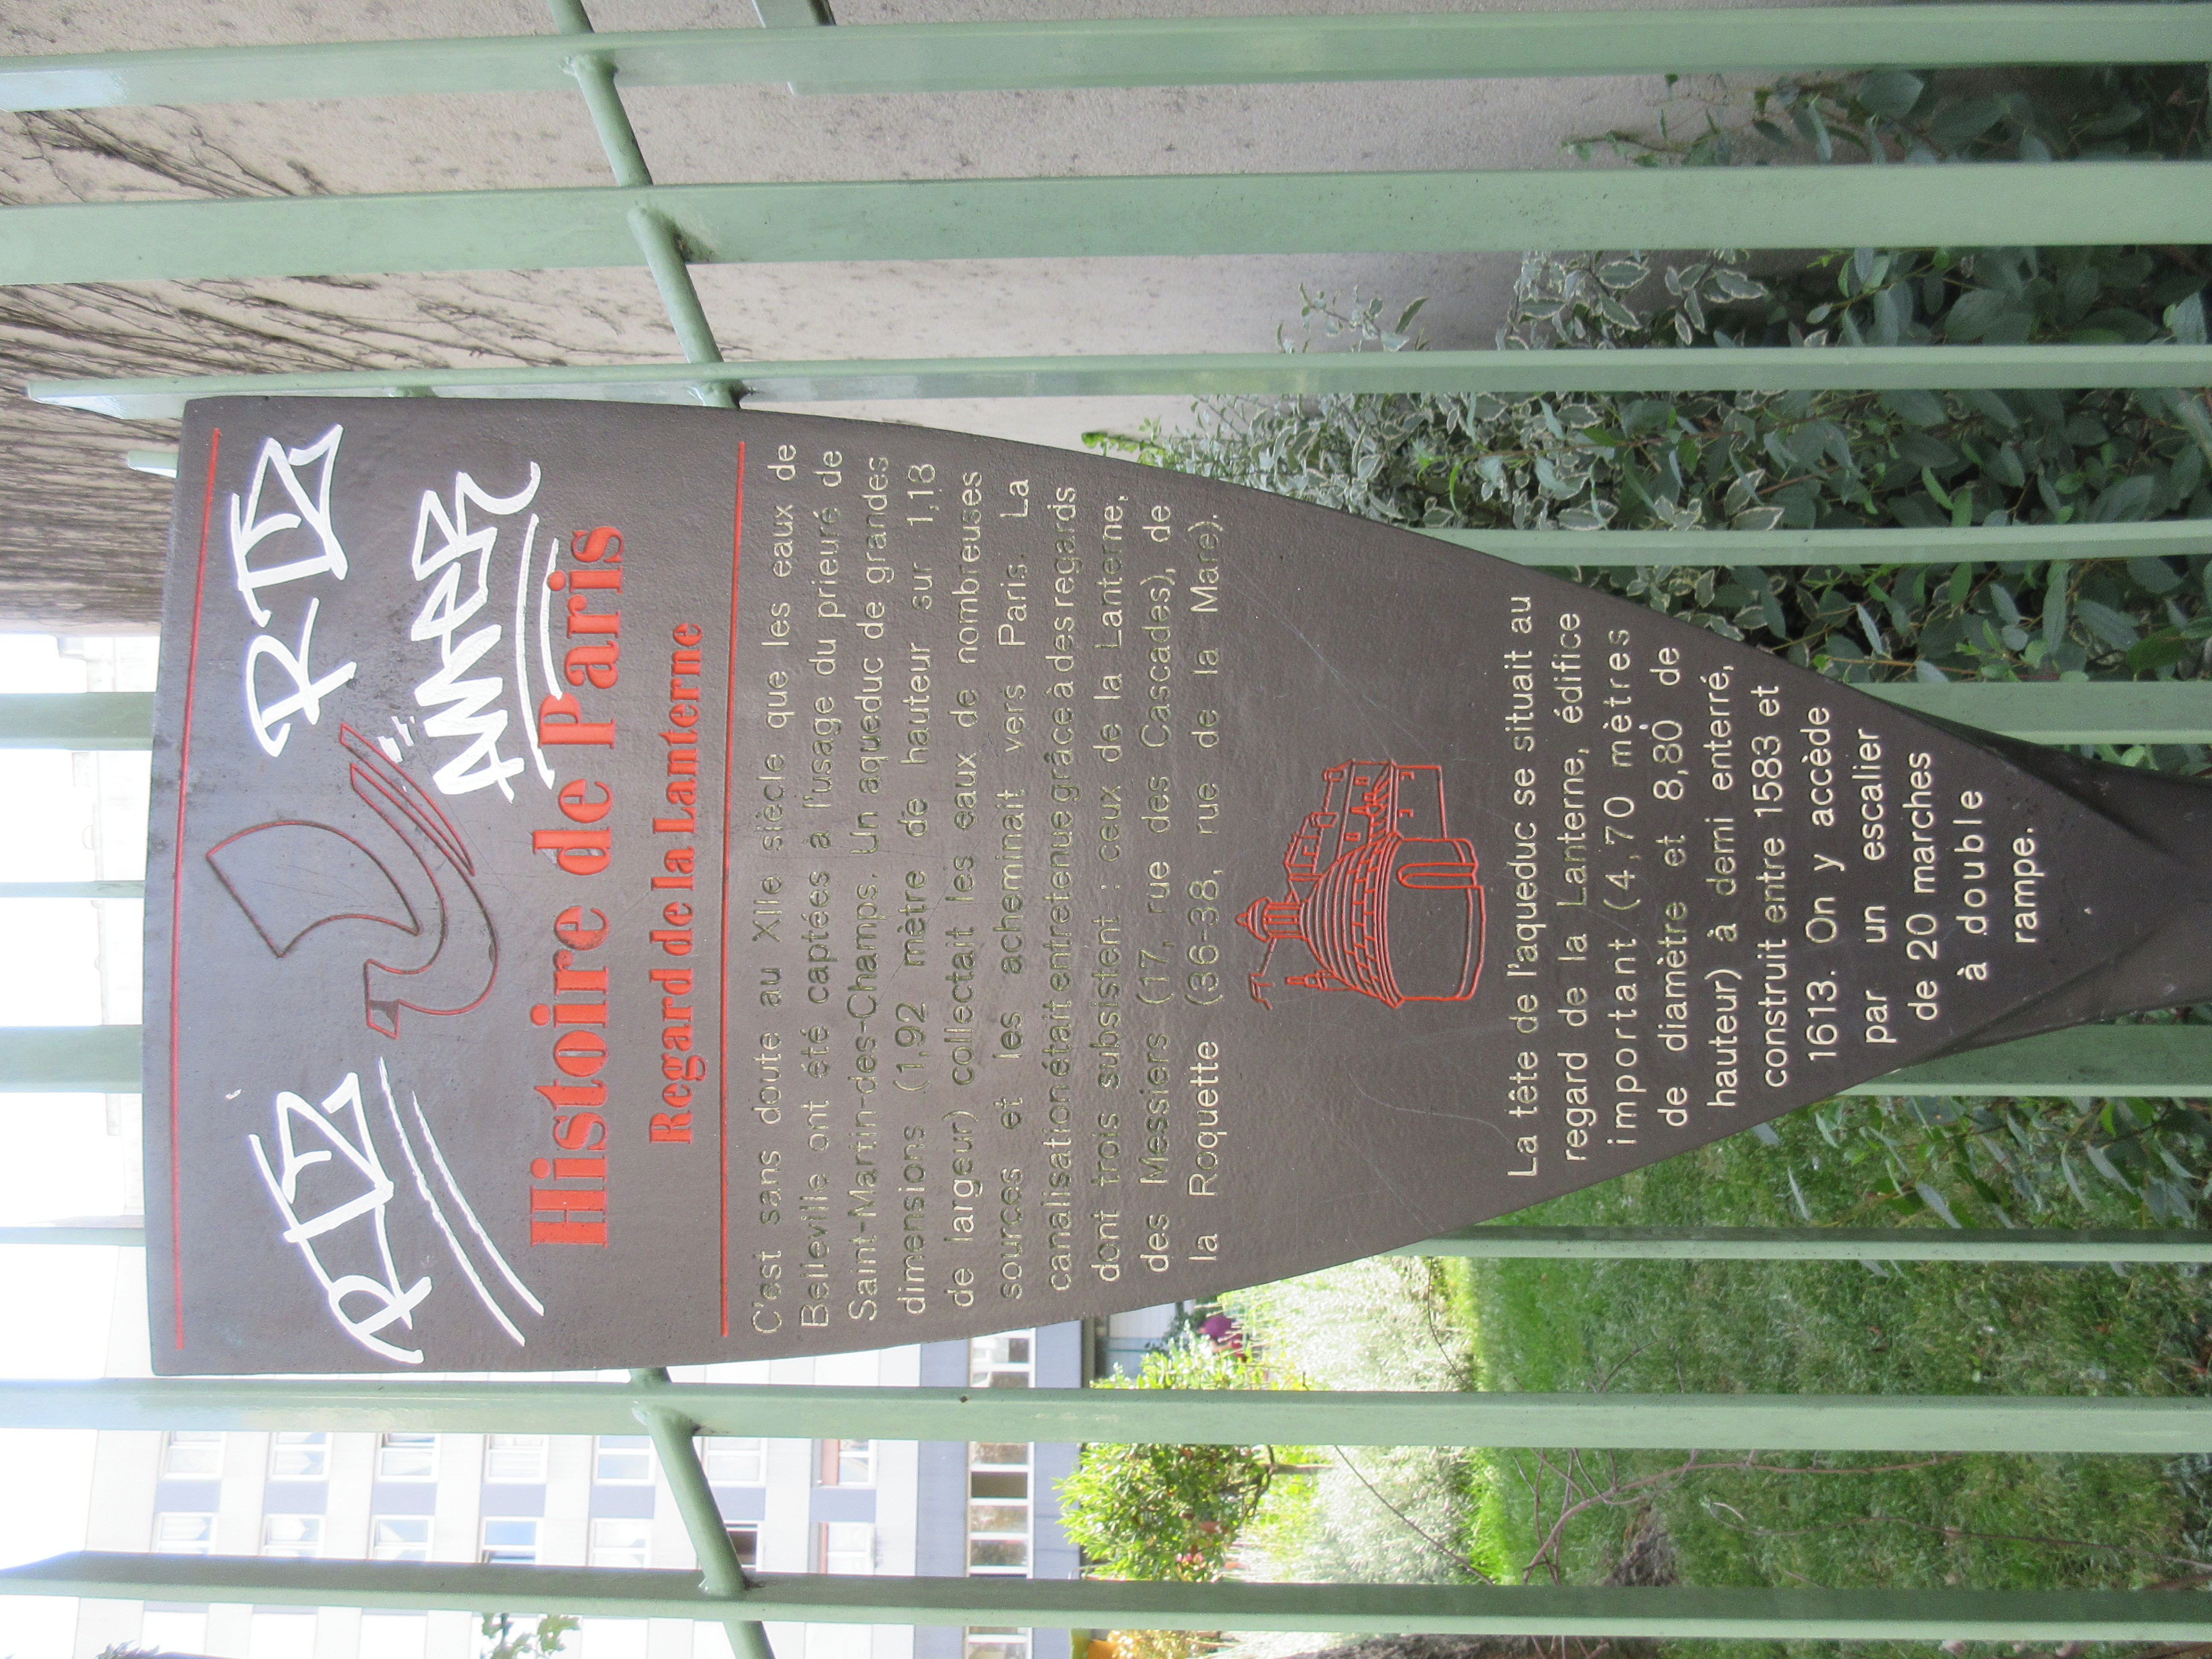 Histoire de Paris
Regard de la Lanterne
C'est sans doute au XIIe siècle que les eaux de
Belleville ont été captées à l'usage du prieuré de
Saint-Martin-des-Champs. Un aqueduc de grandes
dimensions (1,92 mètre de hauteur sur 1,18
de largeur) collectait les eaux de nombreuses
sources et les acheminait vers Paris. La
canalisation était entretenue grâce à des regards
dont trois subsistent : ceux de la Lanterne,
des Messiers (17, rue des Cascades), de
la Roquette (36-38, rue de la Mare).
La tête de l'aqueduc se situait au
regard de la Lanterne, édifice
important (4,70 mètres
de diamètre et 8,80 de
hauteur) à demi enterré,
construit entre 1583 et
1613. On y accède
par un escalier
de 20 marches
à double
rampe.